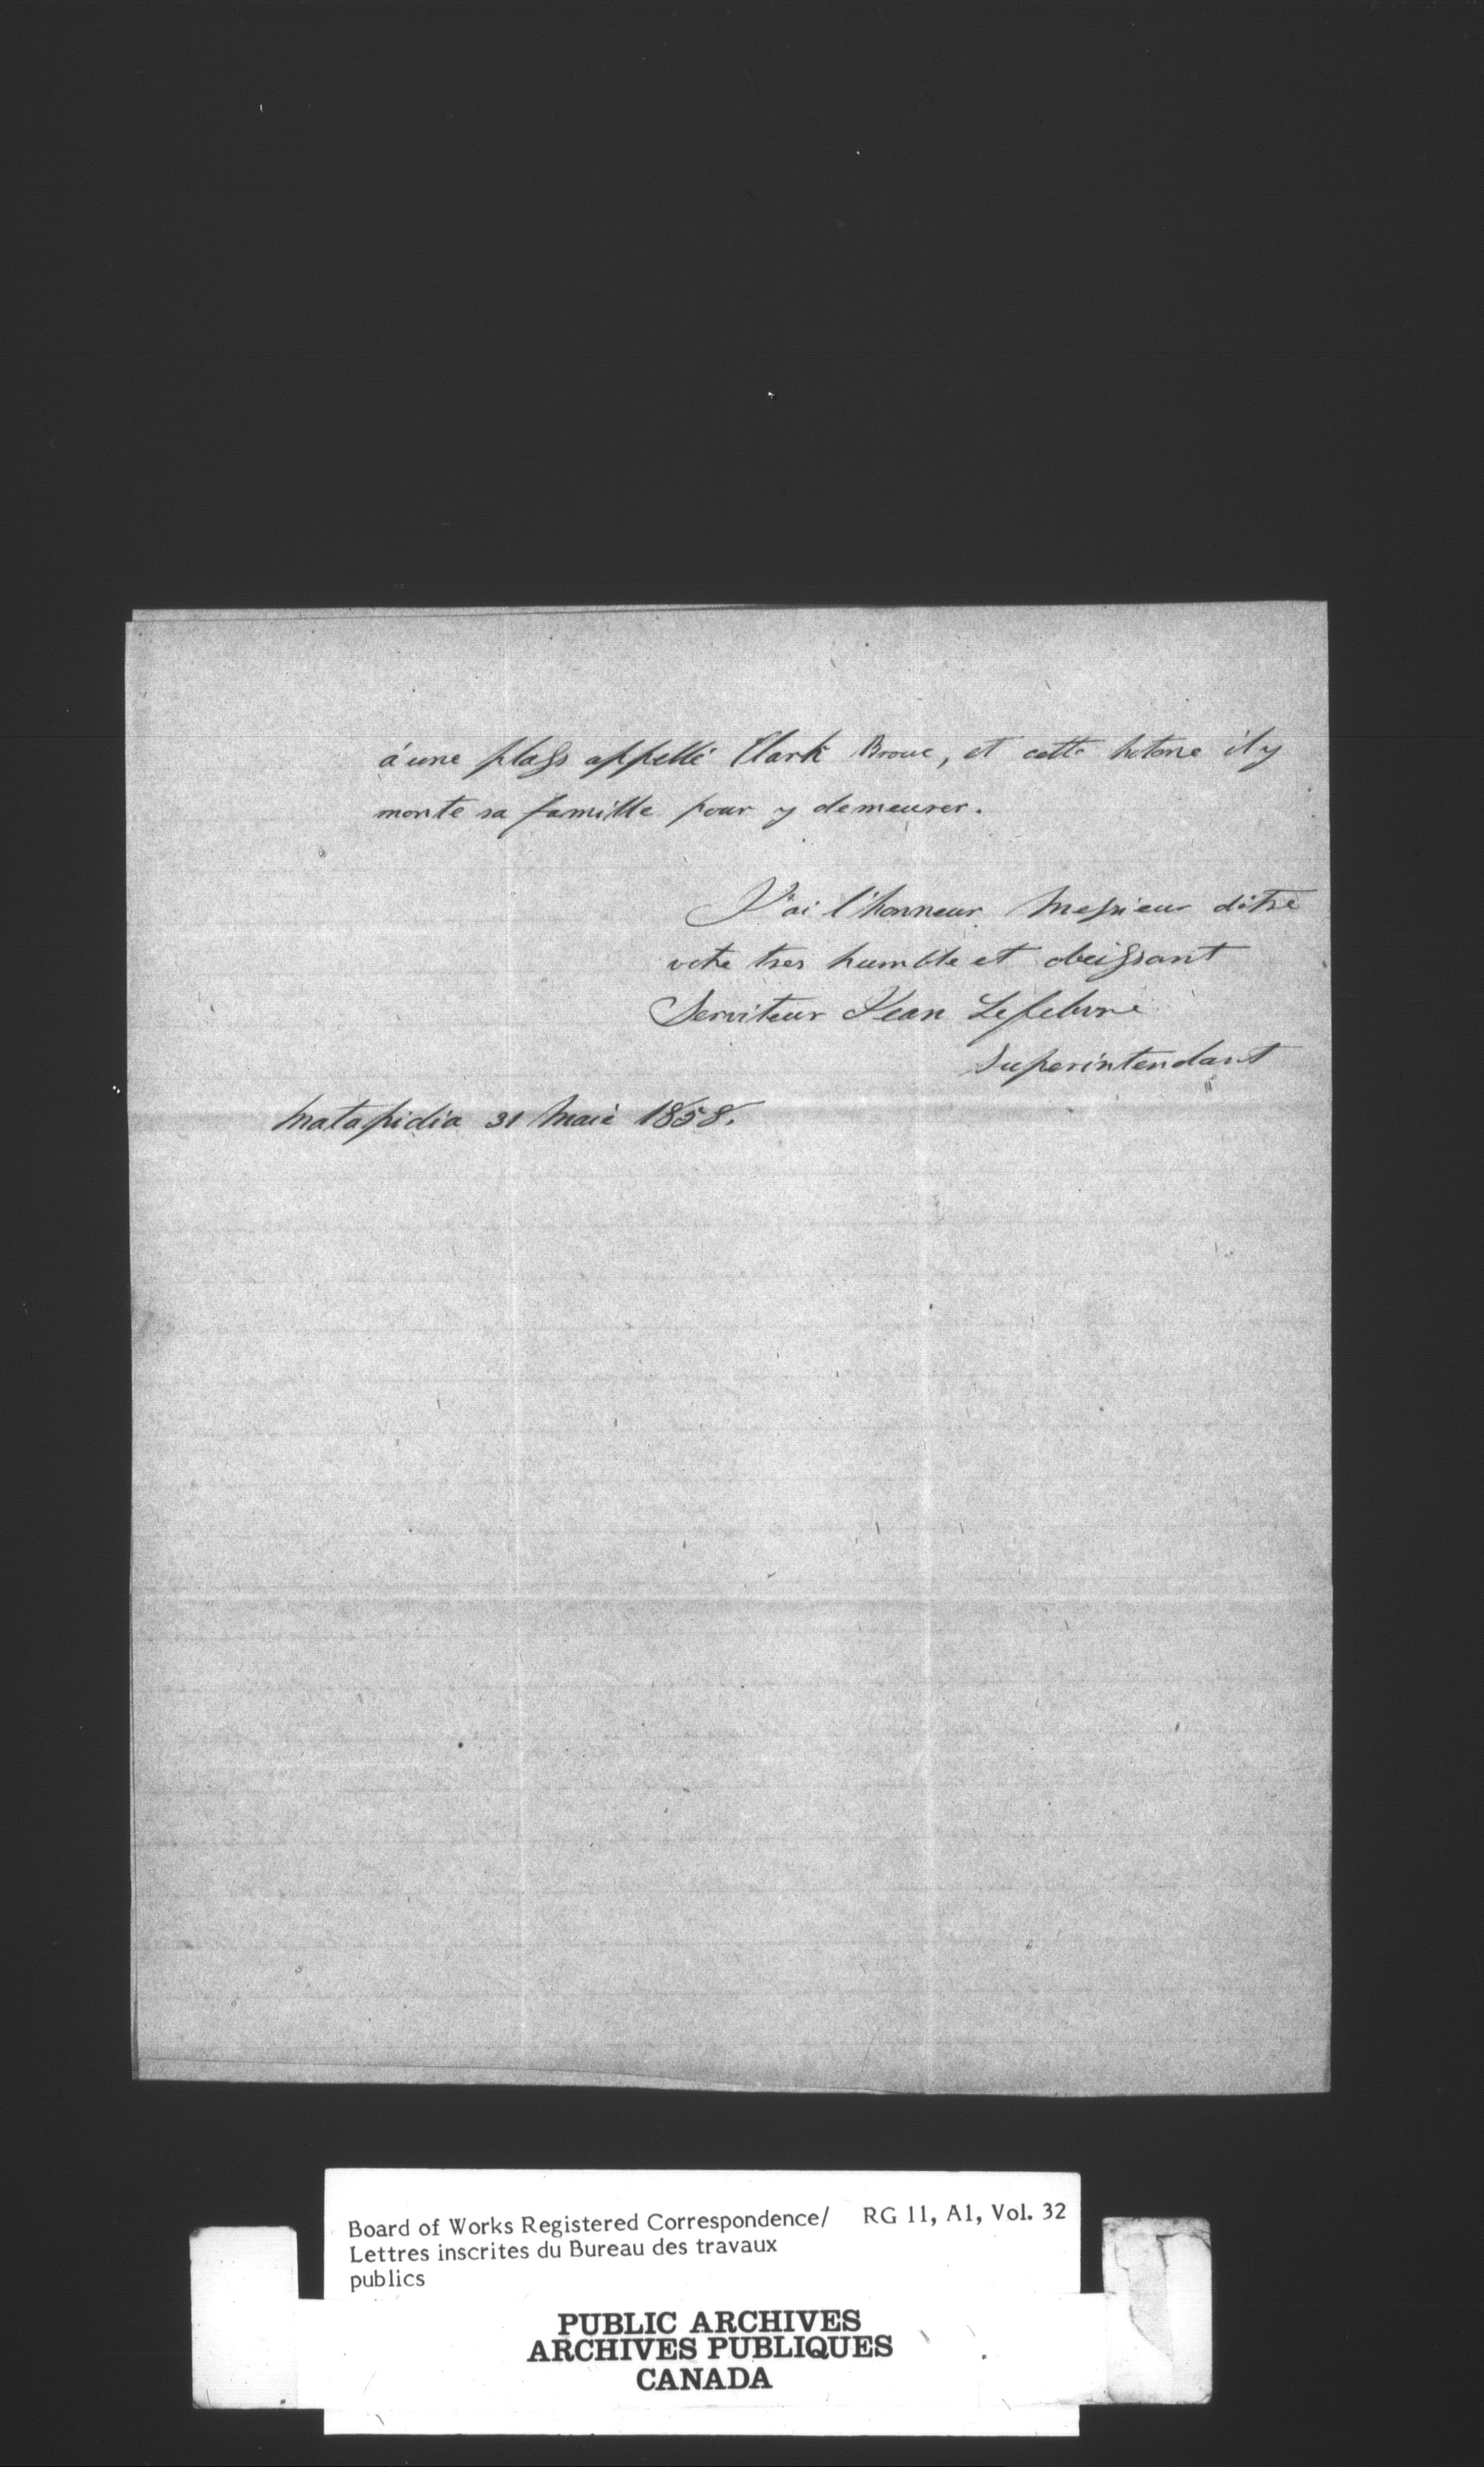 à une plass appellé Clark Brouc, et cette hotone il y
monte sa famille pour y demeurer.
J'ai l'honneur Messieur d'être
votre tres humble et obeissant
Serviteur Jean Lefebvre
Superintendant
Matapidia 31 Maiè 1858.
Board of Works Registered Correspondence/ RG 11, A1, Vol. 32
Lettres inscrites du Bureau des travaux
publics
PUBLIC ARCHIVES
ARCHIVES PUBLIQUES
CANADA